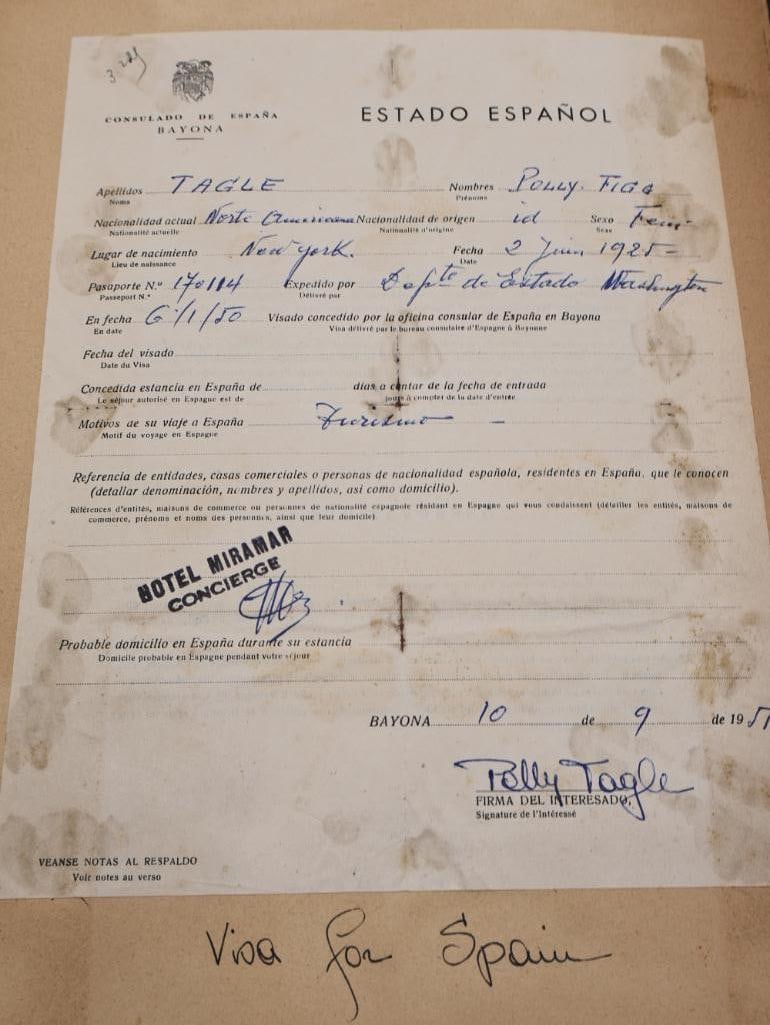 3
CONSULADO DE ESPAÑA
BAYONA
ESTADO ESPAÑOL
Apellidos TAGLE Nombres POLLY. FIGO
Noms Prénoms
Nacionalidad actual Norte Americana Nacionalidad de origen id Sexo Fem.
Nationalité actuelle Nationalité d'origine Sexe
Lugar de nacimiento New York. Fecha 2 Juin 1925-
Lieu de naissance Date
Pasaporte N.º 170114 Expedido por Depte de Estado Washington
Passeport N.º Délivré par
En fecha 6/1/50 Visado concedido por la oficina consular de España en Bayona
En date Visa délivré par le bureau consulaire d'Espagne à Bayonne
Fecha del visado
Date du Visa
Concedida estancia en España de días a contar de la fecha de entrada
Le séjour autorisé en Espagne est de jours à compter de la date d'entrée
Motivos de su viaje a España Turismo -
Motif du voyage en Espagne
Referencia de entidades, casas comerciales o personas de nacionalidad española, residentes en España, que le conocen
(detallar denominación, nombres y apellidos, así como domicilio).
Références d'entités, maisons de commerce ou personnes de nationalité espagnole résidant en Espagne qui vous connaissent (détailler les entités, maisons de
commerce, prénoms et noms des personnes, ainsi que leur domicile)
HOTEL MIRAMAR
CONCIERGE
Probable domicilio en España durante su estancia
Domicile probable en Espagne pendant votre séjour
BAYONA 10 de 9 de 1951
Polly Tagle
FIRMA DEL INTERESADO,
Signature de l'Intéressé
VEANSE NOTAS AL RESPALDO
Voir notes au verso
Visa for Spain